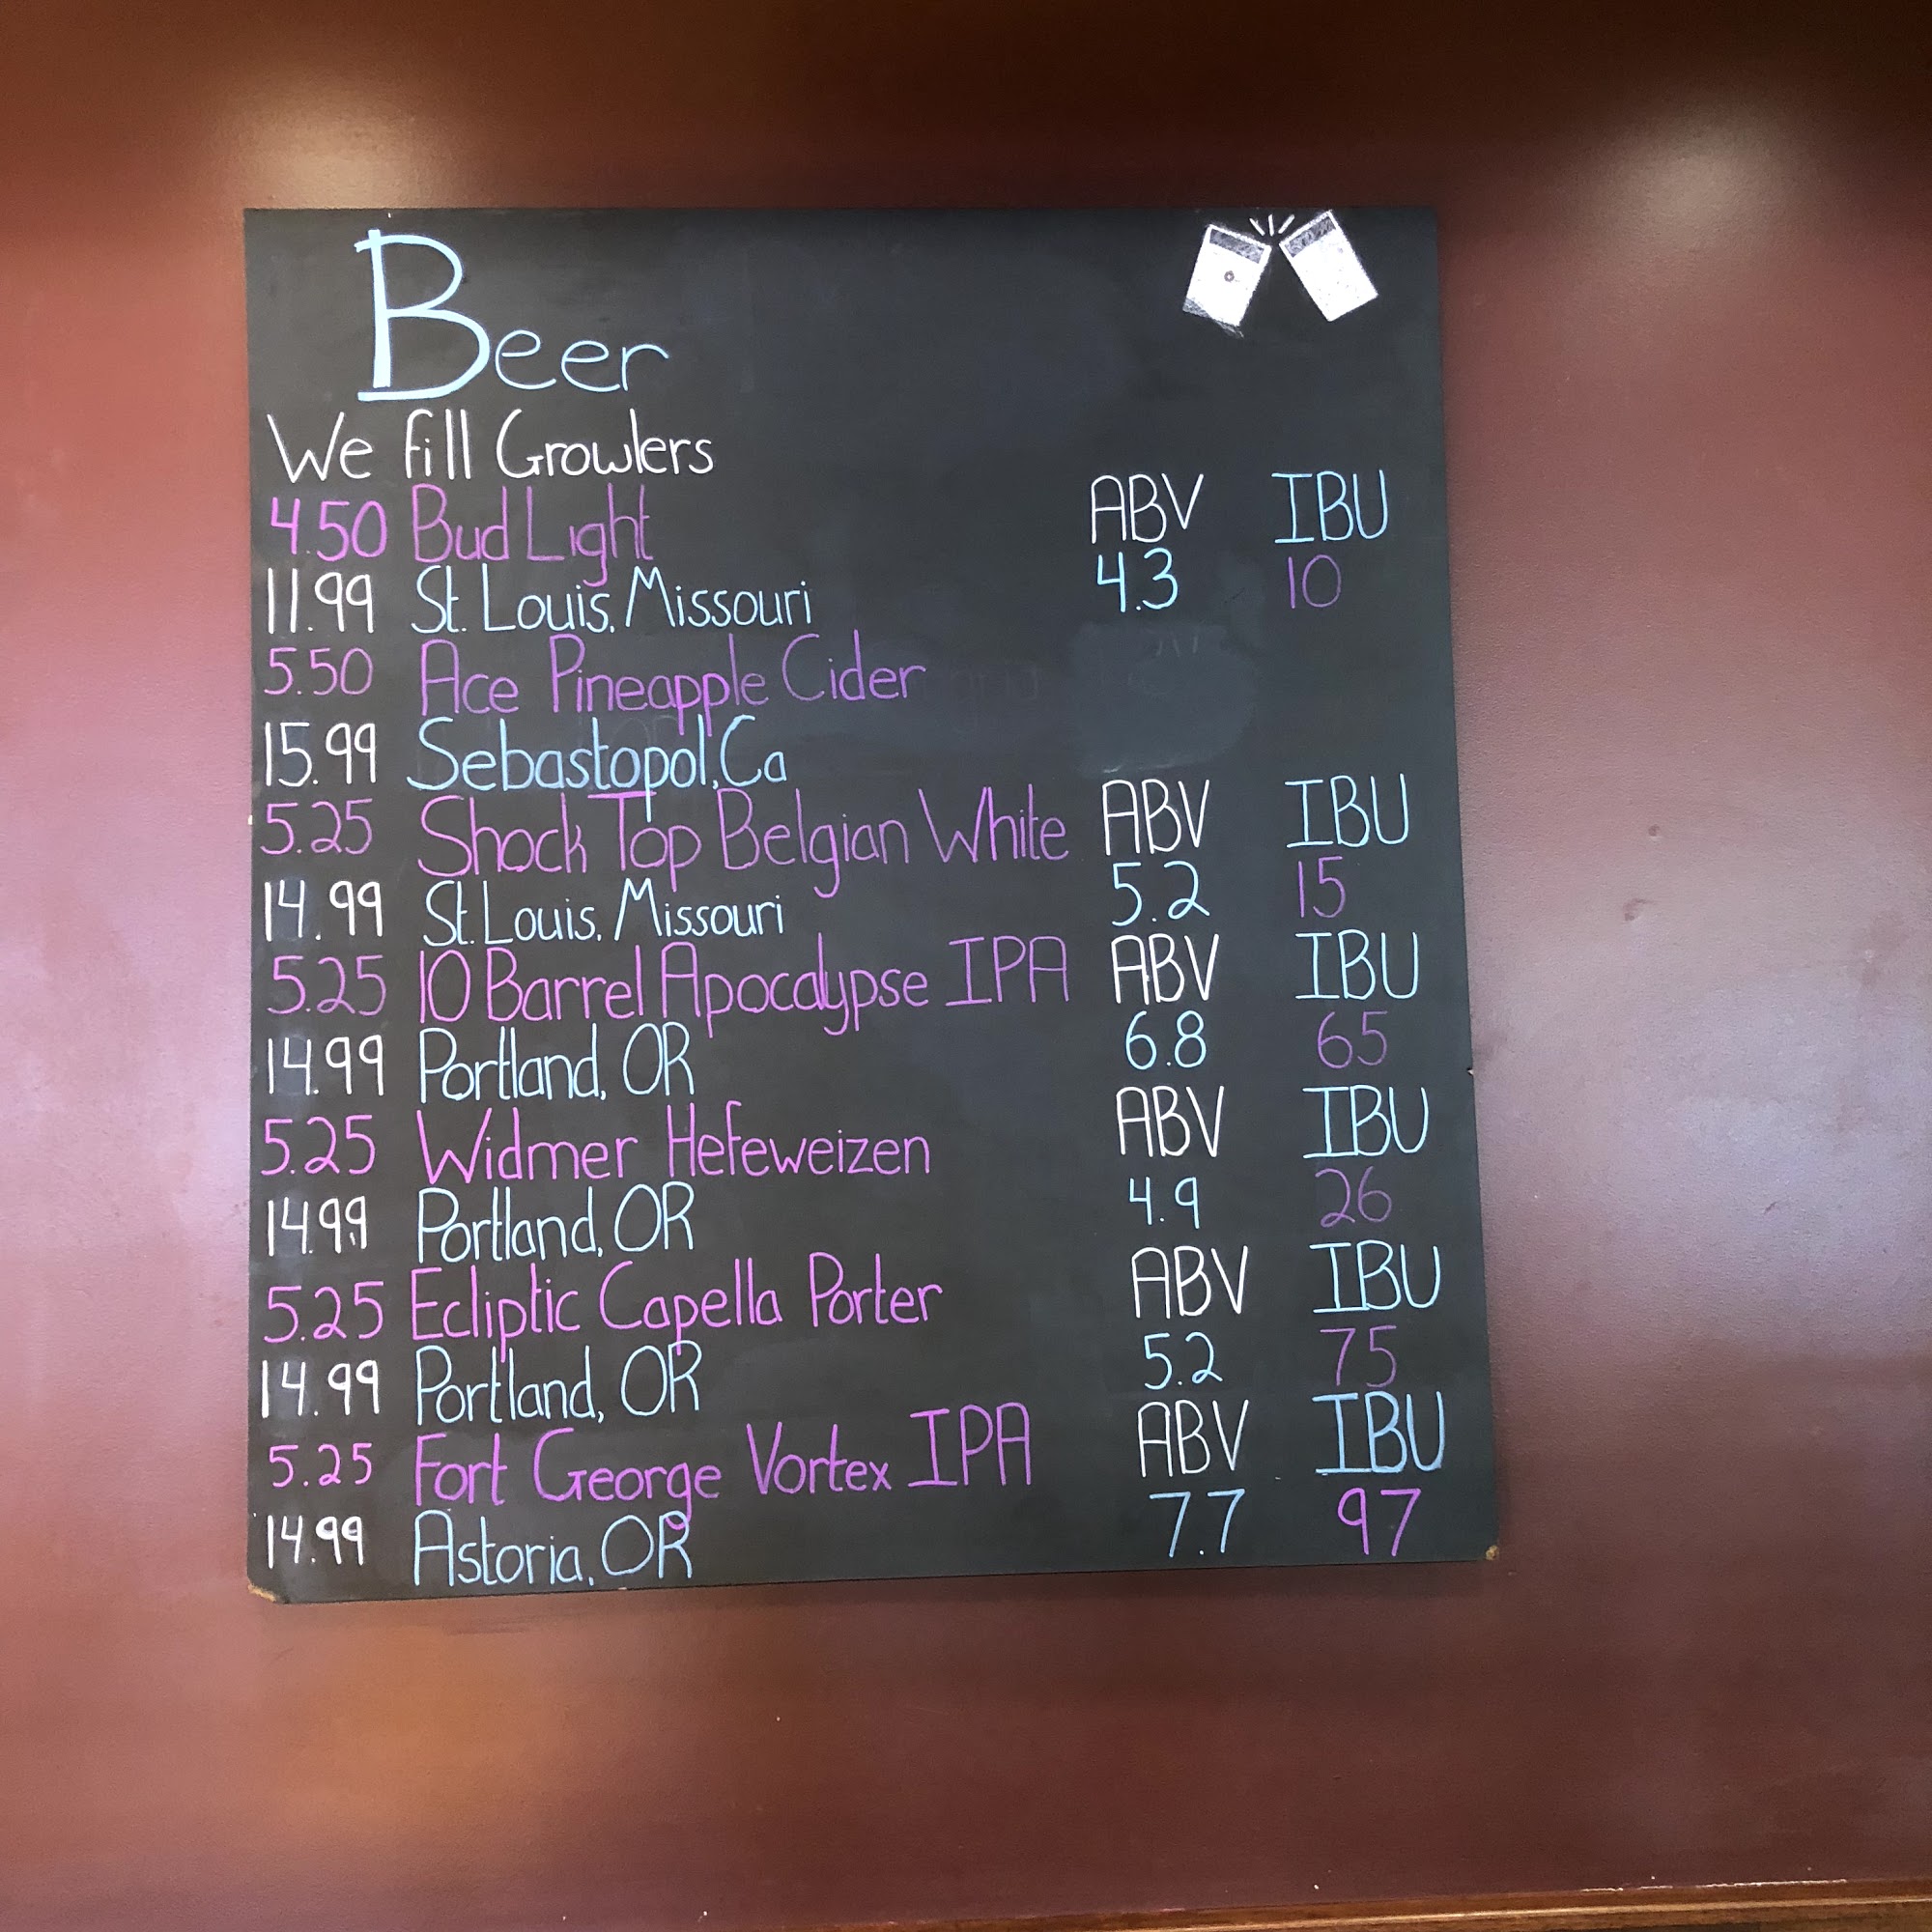 Beer
We fill Growlers
4.50 Bud Light ABV IBU
11.99 St. Louis, Missouri 4.3 10
5.50 Ace Pineapple Cider
15.99 Sebastopol, Ca
5.25 Shock Top Belgian White ABV IBU
14.99 St. Louis, Missouri 5.2 15
5.25 10 Barrel Apocalypse IPA ABV IBU
14.99 Portland, OR 6.8 65
5.25 Widmer Hefeweizen ABV IBU
14.99 Portland, OR 4.9 26
5.25 Ecliptic Capella Porter ABV IBU
14.99 Portland, OR 5.2 75
5.25 Fort George Vortex IPA ABV IBU
14.99 Astoria, OR 7.7 97